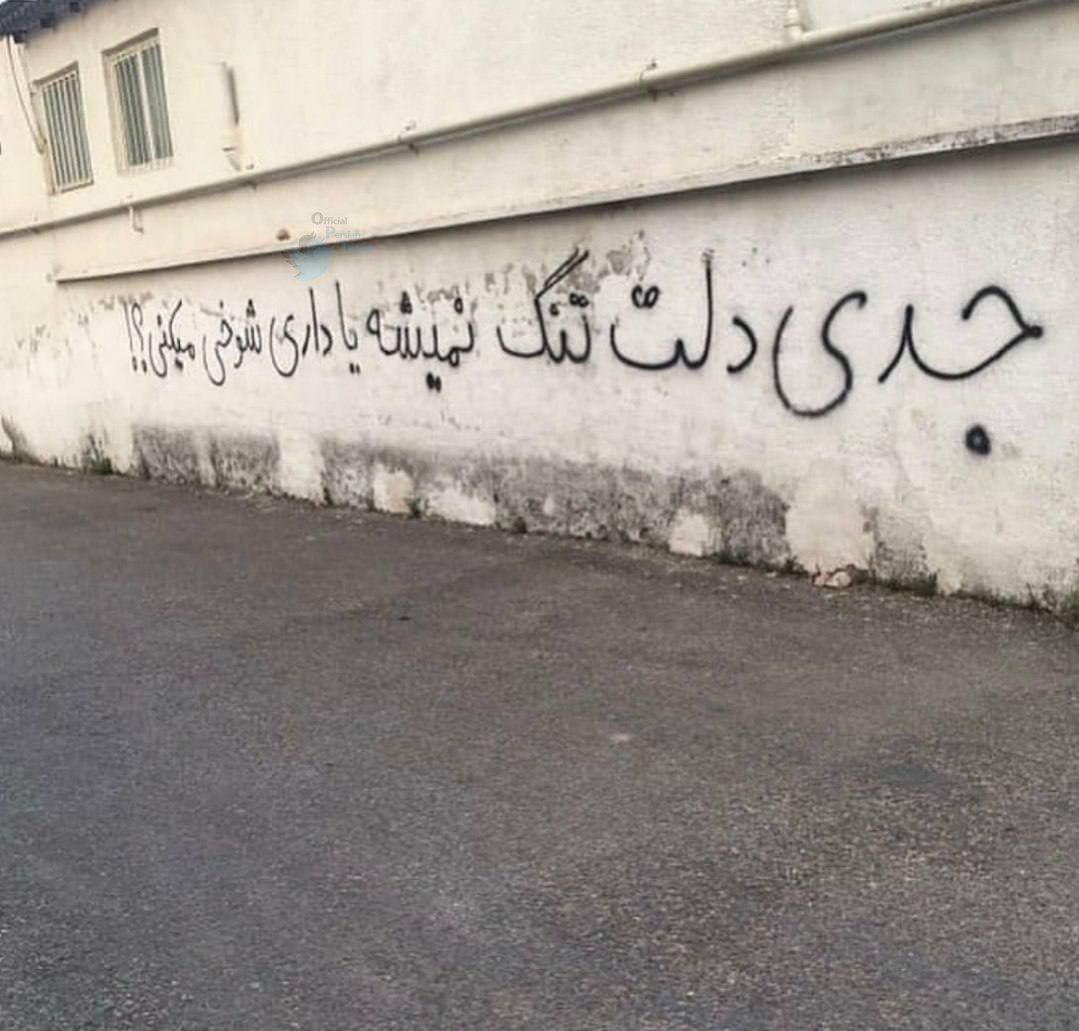 Official
Persian
جدی دلت تنگ نمیشه یا داری شوخی میکنی؟!